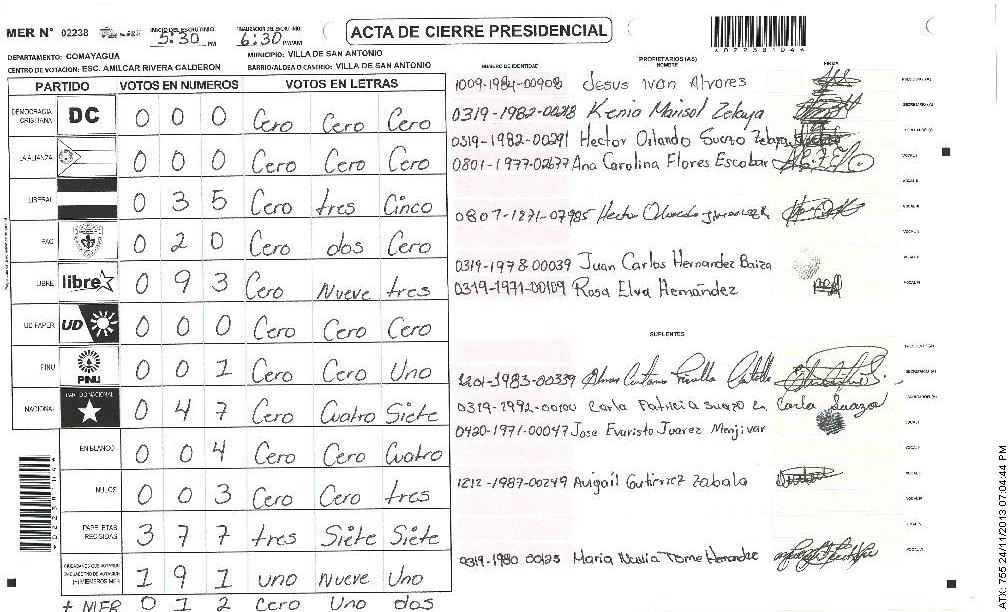 MER N° 02238 INICIO DEL ESCRUTINIO 5:30 PM FINALIZACION DEL ESCRUTINIO 6:30 PM/AM ACTA DE CIERRE PRESIDENCIAL
DEPARTAMENTO: COMAYAGUA MUNICIPIO: VILLA DE SAN ANTONIO
CENTRO DE VOTACION: ESC. AMILCAR RIVERA CALDERON BARRIO/ALDEA O CASERIO: VILLA DE SAN ANTONIO
PARTIDO VOTOS EN NUMEROS VOTOS EN LETRAS
DEMOCRACIA CRISTIANA DC 0 0 0 Cero Cero Cero
LA ALIANZA 0 0 0 Cero Cero Cero
LIBERAL 0 3 5 Cero tres Cinco
PAC 0 2 0 Cero dos Cero
LIBRE libre 0 9 3 Cero Nueve tres
UD FAPER UD 0 0 0 Cero Cero Cero
PINU PINU 0 0 1 Cero Cero Uno
NACIONAL PARTIDO NACIONAL 0 4 7 Cero Cuatro Siete
EN BLANCO 0 0 4 Cero Cero Cuatro
NULOS 0 0 3 Cero Cero tres
PAPELETAS RECIBIDAS 3 7 7 tres Siete Siete
CIUDADANOS QUE VOTARON EN CUADERNO DE VOTACION (+) MIEMBROS MER 1 9 1 uno Nueve Uno
+ MER 0 1 2 Cero Uno dos
PROPIETARIOS (AS)
NUMERO DE IDENTIDAD NOMBRE FIRMA
1009-1984-00908 Jesus ivan Alvores PRESIDENTE (A)
0319-1982-00218 Kenia Marisol Zelaya SECRETARIO (A)
0319-1982-00291 Hector Orlando Suazo Zelaya
0801-1977-02677 Ana Carolina Flores Escobar VOCAL I
0807-1871-07985 Hector
0319-1978-00039 Juan Carlos Hernandez Baiza
0319-1971-00109 Rosa Elva Hernández
SUPLENTES
1201-1983-00339
0319-1992-00100 Carla Patricia suazo Carla Suazo
0420-1971-00047 Jose Evaristo Juarez Menjivar
1212-1987-00249 Avigail Gutierrez Zabala
0319-1980 00125 Maria Tome Hernandez
ATX: 755 24/11/2013 07:04:44 PM